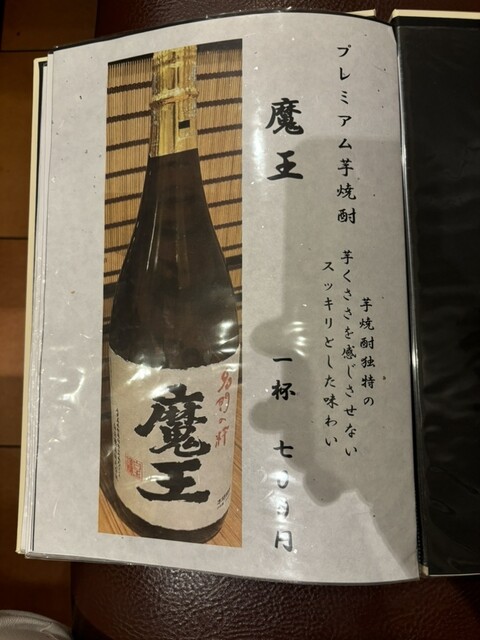 プレミアム芋焼酎
芋焼酎独特の
芋くささを感じさせない
スッキリとした味わい
魔王
一杯 七〇〇円
名門の粋
魔王